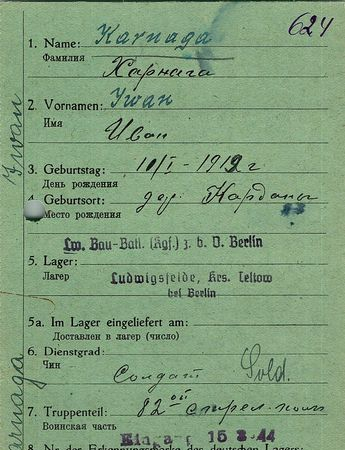 624
1. Name: Karnaga
Фамилия
Харнага
2. Vornamen: Iwan
Имя
Иван
3. Geburtstag: 10/I - 1912 г
День рождения
4. Geburtsort: дер.
Место рождения
Lw. Bau-Batl. (Kgf.) z. b. V. Berlin
5. Lager:
Лагер
Ludwigsfelde, Krs. Teltow
bei Berlin
5a. Im Lager eingeliefert am:
Доставлен в лагер (число)
6. Dienstgrad:
Чин
Солдат Sold.
7. Truppenteil: 82 ой стрел. полк
Воинская часть
Eingang 15 3. 44
8. Nr. der Erkennungsmarke des deutschen Lagers:
Iwan
Karnaga